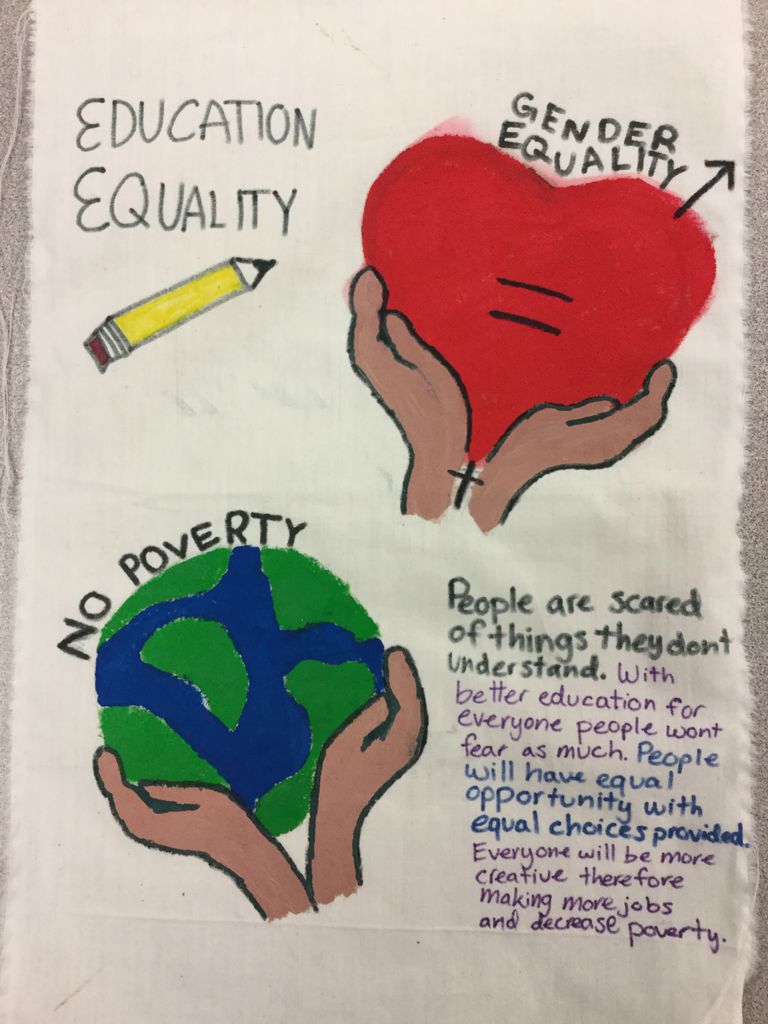 EDUCATION
EQUALITY
GENDER
EQUALITY
NO POVERTY
People are scared
of things they dont
understand. With
better education for
everyone people wont
fear as much. People
will have equal
opportunity with
equal choices provided.
Everyone will be more
creative therefore
making more jobs
and decrease poverty.